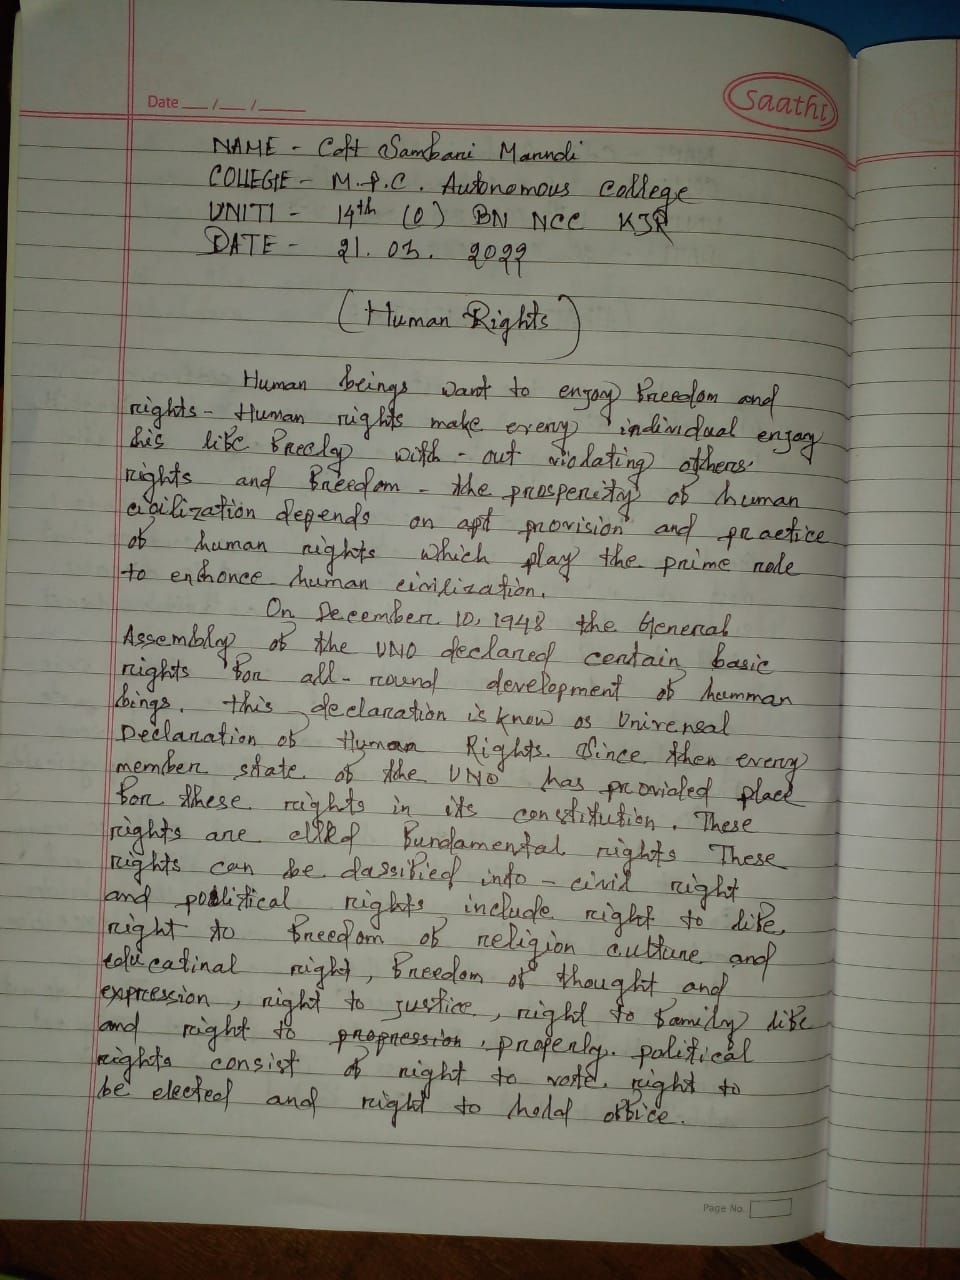 Date __/__/____
Saathi
NAME - Cdt Sambari Manndi
COLLEGE - M.P.C. Autonomous College
UNIT1 - 14th (O) BN NCC KJR
DATE - 21. 03. 2022
(Human Rights)
Human beings want to enjoy freedom and
rights - Human rights make every individual enjoy
his life freely with-out violating others'
rights and freedom - the prosperity of human
civilization depends on apt provision and practice
of human rights which play the prime role
to enhonce human civilization.
On December 10, 1948 the General
Assembly of the UNO declared certain basic
rights for all-round development of humman
bings. this declaration is know as Universal
Declaration of Human Rights. Since then every
member state of the UNO has provided place
for these rights in its constitution. These
rights are fundamental rights These
rights can be classified into - civil right
and political rights include right to life,
right to freedom of religion culture and
educatinal right, freedom of thought and
exprcession, right to justice, right to family life
and right to properly. political
rights consist of right to vote, right to
be elected and right to hold office.
Page No.